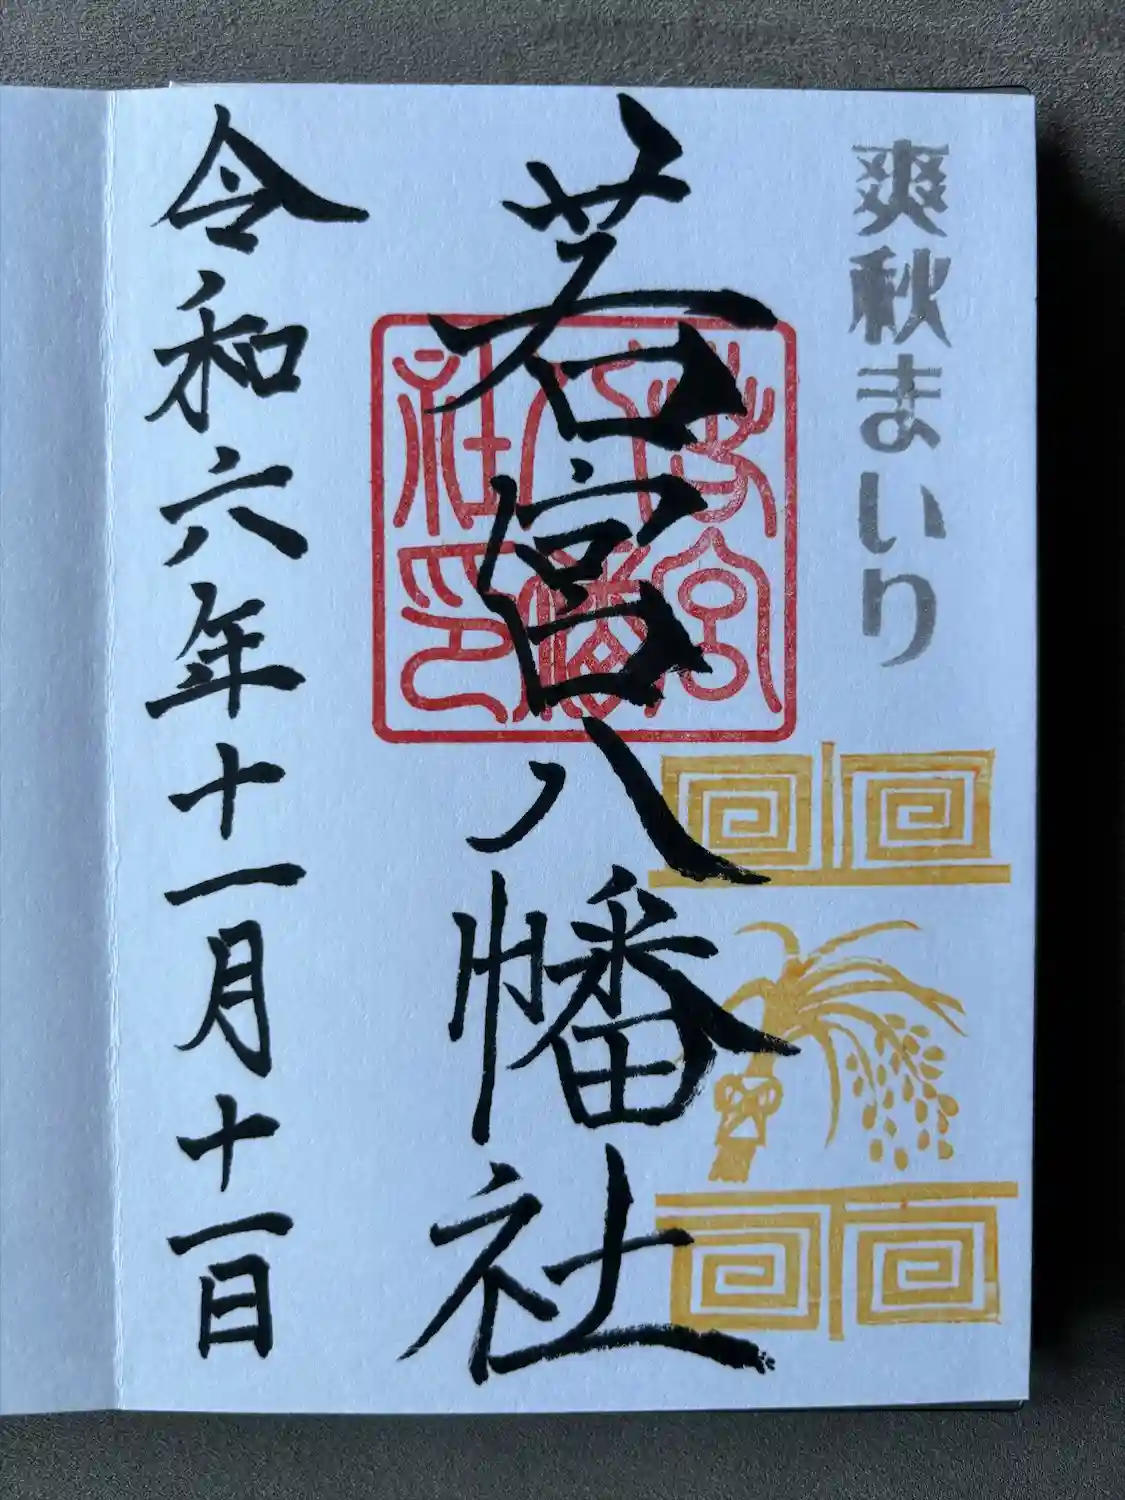 爽秋まいり
若宮八幡社
若宮八幡社印
令和六年十一月十一日